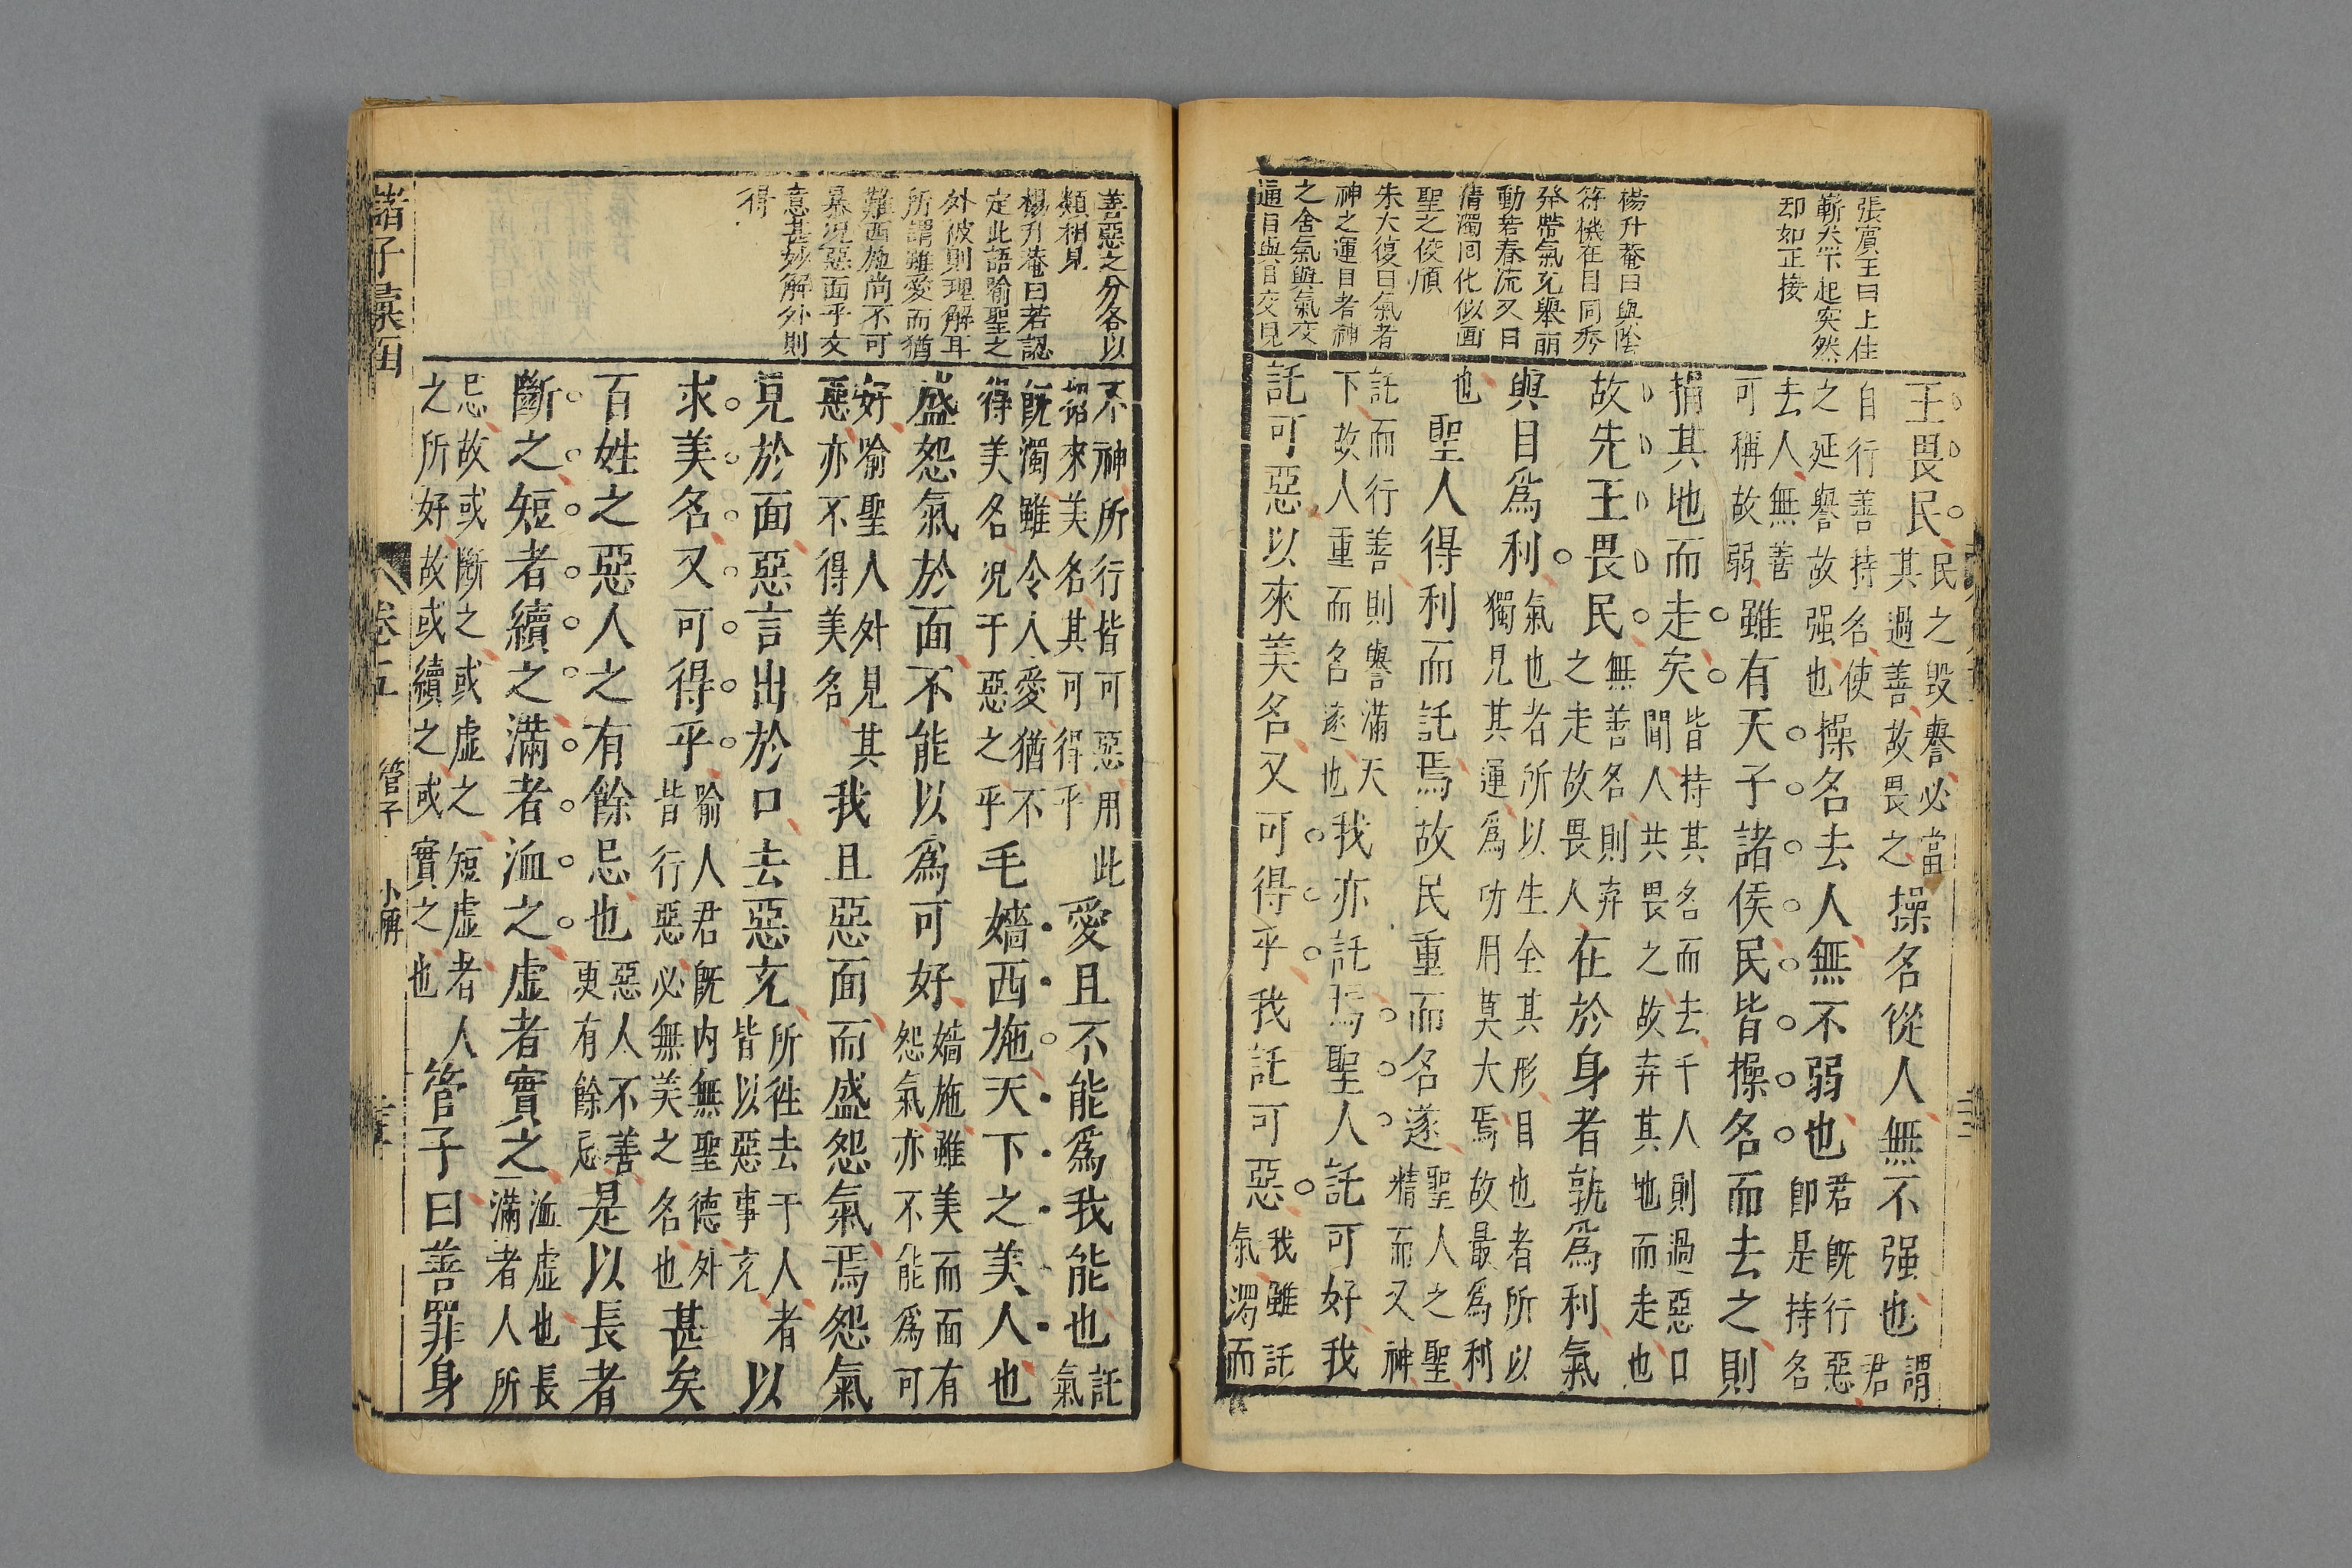 張賓王曰上佳
嶄然下起突然
却如正接
楊升菴曰與陰
符機在目同秀
發帶氣充舉丽
動若春流又目
清濁同化似画
聖之俊頎
朱大復曰氣者
神之運目者神
之舍氣與氣交
通目與目交見
王畏民民之毀譽必當其過善故畏之操名從人無不强也謂君
自行善持名使之延譽故强也操名去人無不弱也君既行惡即是持名
去人無善可稱故弱雖有天子諸侯民皆操名而去之則
捐其地而走矣皆持其名而去千人則過惡口聞人共畏之故弃其地而走也
故先王畏民無善名則弃之走故畏人在於身者孰爲利氣
與目爲利氣也者所以生全其形目也者所以獨見其運爲功用莫大焉故最爲利
也聖人得利而託焉故民重而名遂聖人之聖精而又神
託而行善則譽滿天下故人重而名遂也我亦託焉聖人託可好我
託可惡以來美名又可得乎我託可惡我雖託氣濁而
善惡之分各以
類相見
楊升菴曰若認
定此語喻聖之
外彼則理解耳
所謂雖愛而猶
難西施尚不可
暴况惡面乎文
意甚妙解外則
得
不神所行皆可惡用此招來美名其可得乎愛且不能爲我能也託氣
既濁雖令人愛猶不得美名况于惡之乎毛嬙西施天下之美人也
盛怨氣於面不能以爲可好嬙施雖美而面有怨氣亦不能爲可
好喻聖人外見其惡亦不得美名我且惡面而盛怨氣焉怨氣
見於面惡言出於口去惡充所徃去于人者皆以惡事充以
求美名又可得乎喻人君既内無聖德外皆行惡必無美之名也甚矣
百姓之惡人之有餘忌也惡人不善更有餘忌是以長者
斷之短者續之滿者洫之虚者實之洫虚也長滿者人所
忌故或斷之或虚之短虚者人之所好故或續之或實之也管子曰善罪身
諸子彙函 卷五 管子 小稱